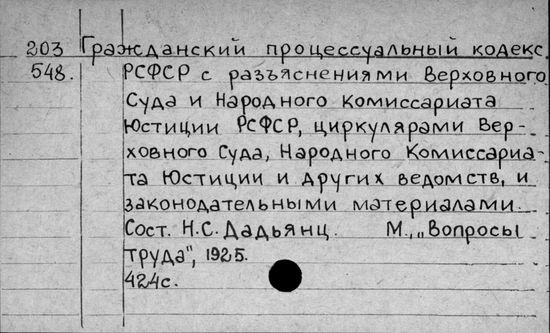 203 Гражданский процессуальный кодекс
548. РСФСР с разъяснениями Верховного
Суда и Народного Комиссариата
Юстиции РСФСР, циркулярами Вер-
ховного Суда, Народного Комиссариа-
та Юстиции и других ведомств, и
законодательными материалами.
Сост. Н.С. Дадьянц. М., „Вопросы
труда", 1925.
424с.